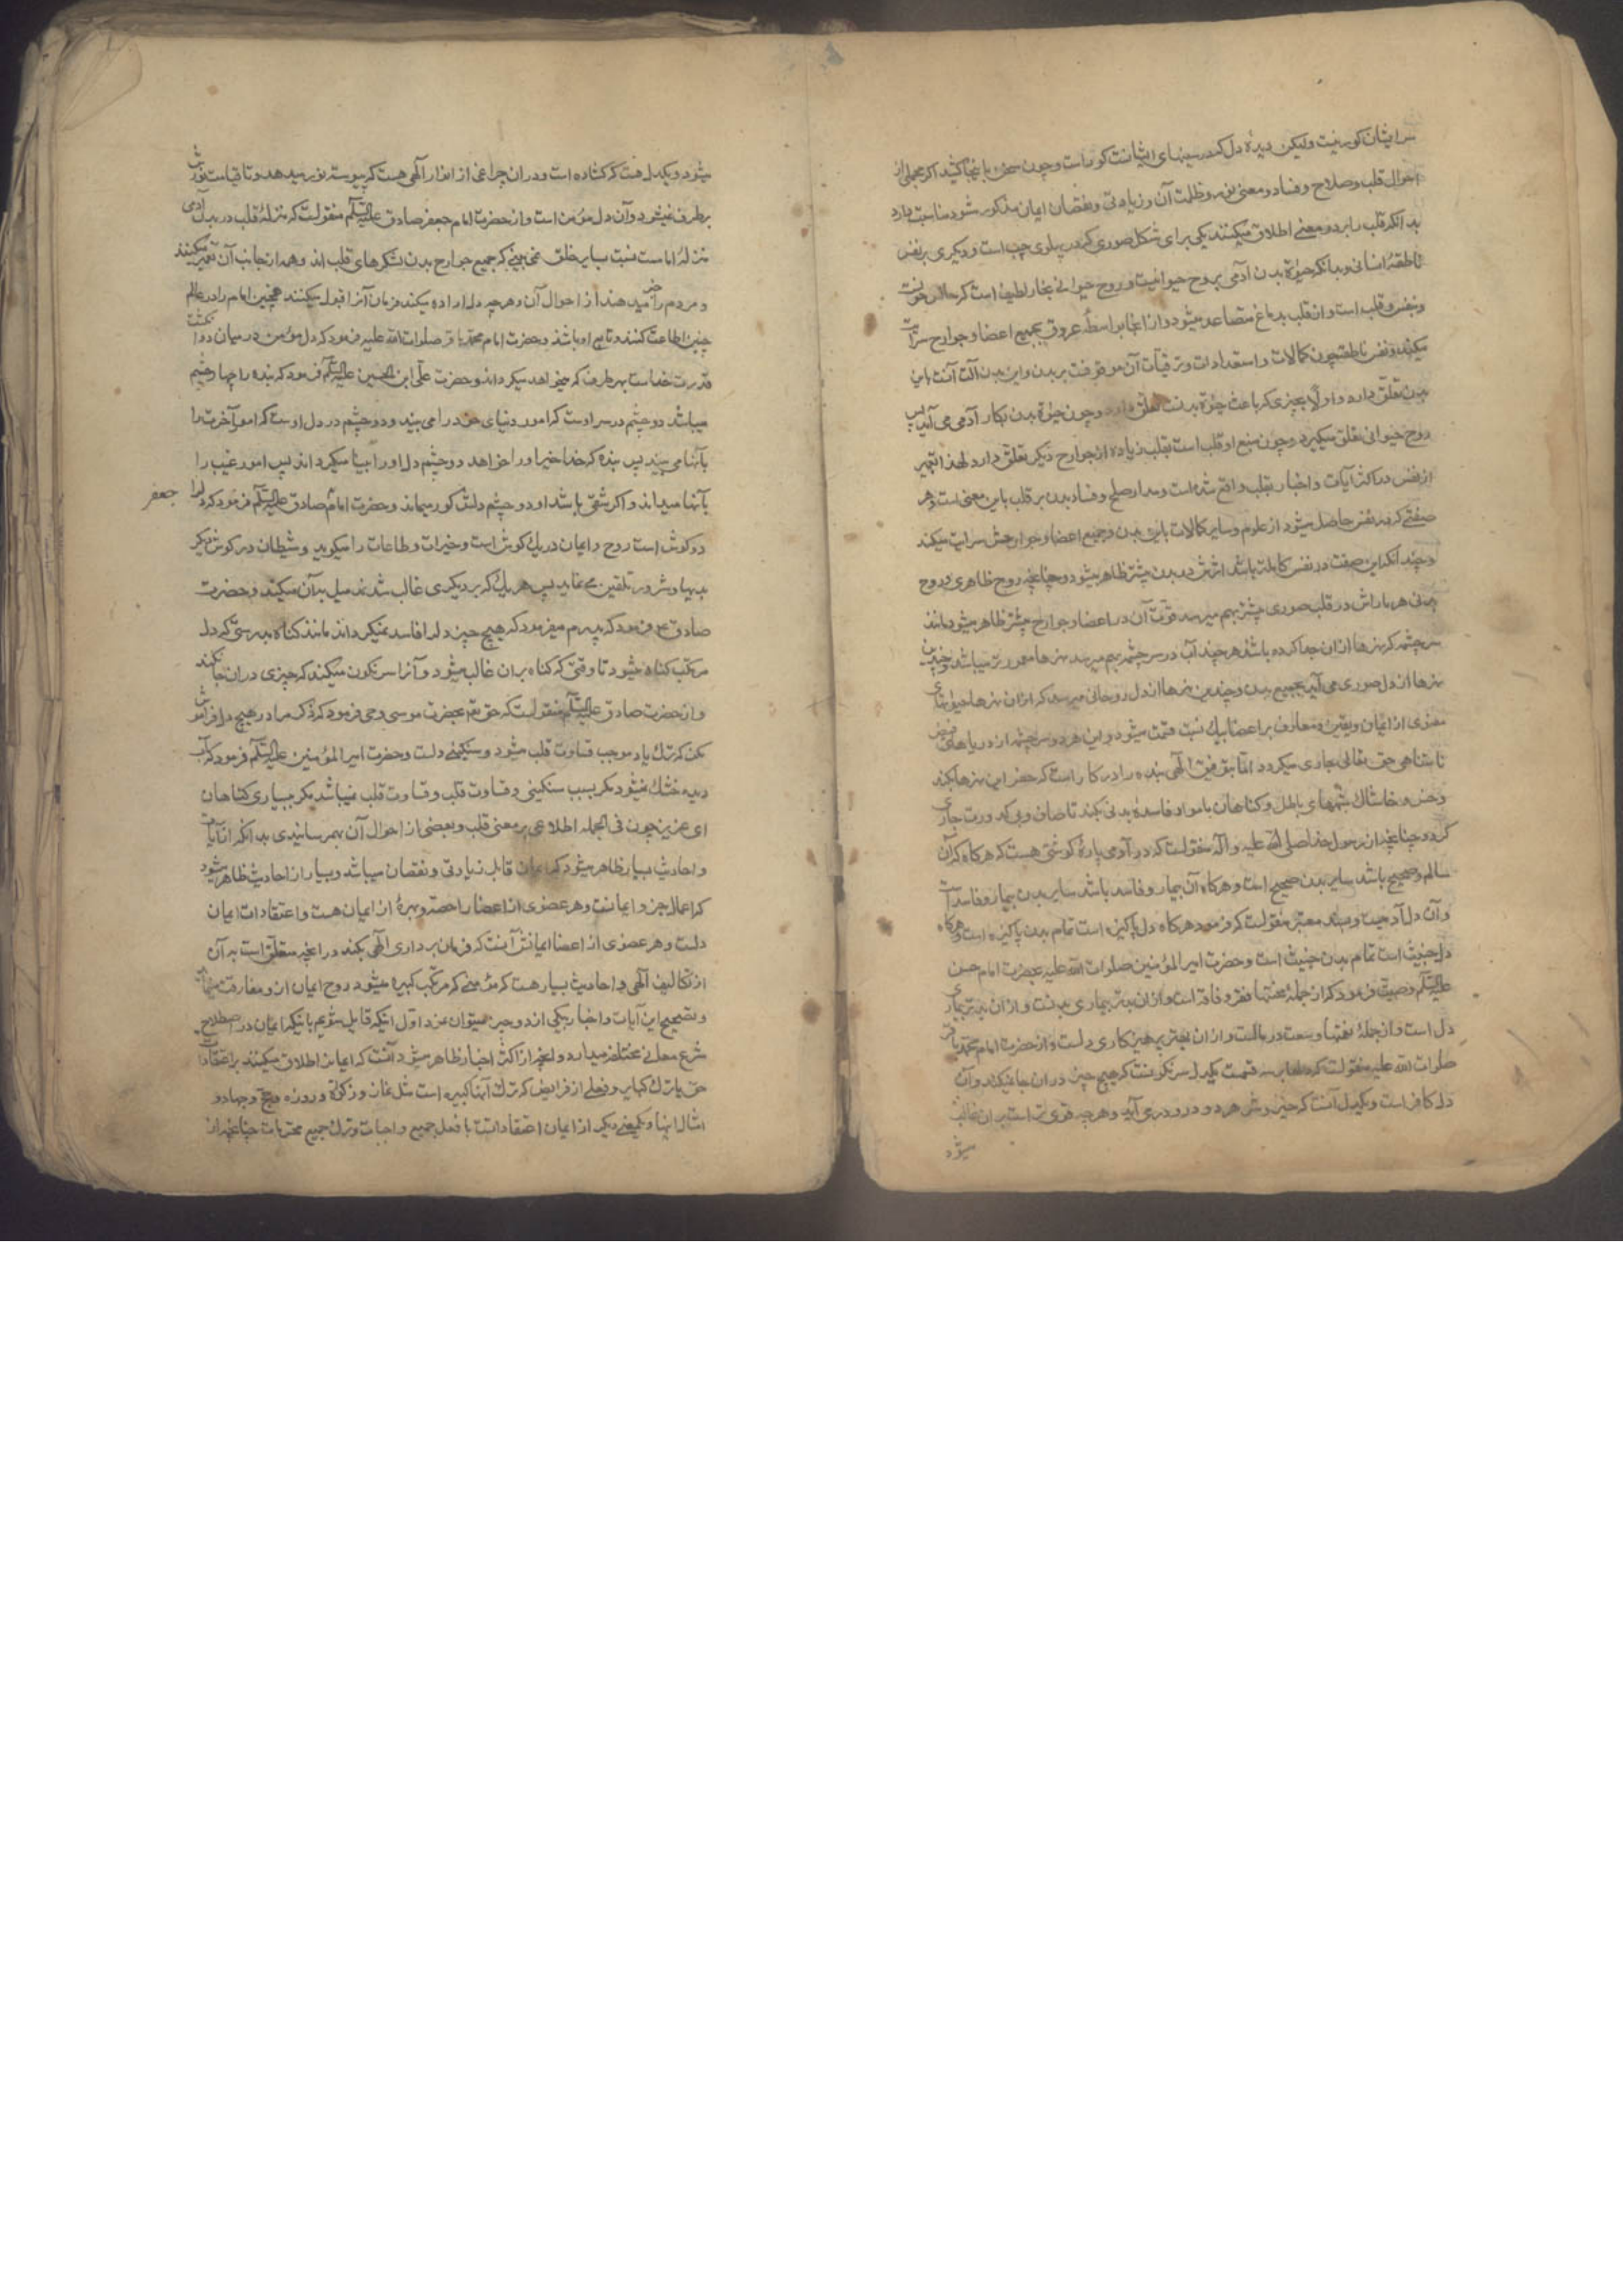 سر ایشان کور نیست ولیکن دیدهٔ دل که در سینهای ایشانست کور است و چون سخن باینجا کشید اگر مجملی از
احوال قلب و صلاح و فساد و معنی نور و ظلمت آن و زیادتی و نقصان ایمان مذکور شود مناسبت دارد
بدانکه قلب را بر دو معنی اطلاق میکنند یکی برای شکل صوری که در پهلوی چپ است و دیگری بر نفس
ناطقهٔ انسانی و بدانکه حیوة بدن آدمی بروح حیوانیست و روح حیوانی بخار لطیفی است که حاملش خونست
و منبعش قلب است و از قلب بدماغ متصاعد میشود و از آنجا بواسطهٔ عروق بجمیع اعضا و جوارح سرایت
میکند و نفس ناطقه چون کمالات و استعدادات و ترقیات آن موقوفست بر بدن و این بدن آلت آنست باین
بدن تعلق دارد و اولا بچیزی که باعث حیوة بدنست تعلق دارد و چون حیوة بدن بکار آدمی می آید پس
روح حیوانی تعلق میگیرد و چون منبع او قلب است بقلب زیاده از جوارح دیگر تعلق دارد لهذا تعبیر
از نفس در اکثر آیات و اخبار بقلب واقع شده است و مدار صلح و فساد بدن بر قلب باین معنی است و هر
صفتی که در نفس حاصل میشود از علوم و سایر کمالات باین بدن و جمیع اعضا و جوارحش سرایت میکند
و چندانکه این صفت در نفس کاملتر باشد اثرش در بدن بیشتر ظاهر میشود و چنانچه روح ظاهری و روح
بدنی هر بار اش در قلب صوری بیشتر بهم میرسد قوّت آن در اعضا و جوارح بیشتر ظاهر میشود مانند
سرچشمه که نهرها از ان جدا کرده باشند هر چند آب در سرچشمه بهم میرسد نهرها معمورتر میباشد و چندین
نهرها از دل صوری می آید بجمیع بدن و چندین نهرها از دل روحانی میرسد که از ان نهرها حیوتهای
معنوی از ایمان و یقین و معارف بر اعضا بیک نسبت قسمت میشود و این هر دو سرچشمه از دریاهای فیض
نامتناهی حق تعالی جاری میگردد اما توفیق الهی بنده را در کار است که حفر این نهرها بکند
و خس و خاشاک شبههای باطل و گناهان با مواد فاسدهٔ بدنی بکند تا صاف و بی کدورت جاری
گردد چنانچه از رسول خدا صلی الله علیه و آله منقولست که در آدمی پارهٔ گوشتی هست که هرگاه که آن
سالم و صحیح باشد سایر بدن صحیح است و هرگاه آن بیمار و فاسد باشد سایر بدن بیمار و فاسد است
و آن دل آدمیست و بسند معتبر منقولست که فرمود هرگاه دل پاکیزه است تمام بدن پاکیزه است و هرگاه
دل خبیث است تمام بدن خبیث است و حضرت امیر المؤمنین صلوات الله علیه بحضرت امام حسن
علیه السلام وصیت فرمود که از جملهٔ محنتها فقر و فاقه است و از ان بدتر بیماری بدنست و از ان بدتر بیماری
دل است و از جملهٔ نعمتها وسعت در مالست و از ان بهتر پرهیزکاری دلست و از حضرت امام محمد باقر
صلوات الله علیه منقولست که دلها بر سه قسمت یکدل سرنگونست که هیچ چیز در ان جا نمیکند و آن
دل کافر است و یکدل آنست که خیر و شر هر دو در و در می آید و هر چه قوی تر است بر ان غالب
میشود
میشود و یکدل هست که گشاده است و در ان چراغی از انوار الهی هست که پیوسته نور میدهد و تا قیامت نورش
برطرف نمیشود و آن دل مؤمن است و از حضرت امام جعفر صادق علیه السلام منقولست که منزلهٔ قلب در بدن آدمی
بمنزلهٔ امامست نسبت بسایر خلق نمی بینی که جمیع جوارح بدن لشکرهای قلب اند و همه از جانب آن تعبیر میکنند
و مردم را خبر میدهند از احوال آن و هر چه دل اراده میکند فرمان آنرا قبول میکنند همچنین امام را در عالم
چنین اطاعت کنند و تابع او باشند و حضرت امام محمد باقر صلوات الله علیه فرمود که دل مؤمن در میان دو انگشت
قدرت خداست بهر طرف که میخواهد میگرداند و حضرت علی ابن الحسین علیه السلام فرمود که بنده را چهار چشم
میباشد دو چشم در سر اوست که امور دنیای خود را می بیند و دو چشم در دل اوست که امور آخرت را
بآنها می بیند پس بنده که خدا خیر او را خواهد دو چشم دل او را بینا میگرداند پس امور غیب را
بآنها میداند و اگر شقی باشد او دو چشم دلش کور میماند و حضرت امام صادق علیه السلام فرمود که دل را
جعفر
دو گوش است روح و ایمان در یک گوش است و خیرات و طاعات را میگوید و شیطان در گوش دیگر
بدیها و شرور تلقین می نماید پس هر یک که بر دیگری غالب شدند میل بدآن میکند و حضرت
صادق ع فرمود که پدرم میفرمود که هیچ چیز دل را فاسد نمیگرداند مانند گناه بدرستی که دل
مرتکب گناه میشود تا وقتی که گناه بر ان غالب میشود و آنرا سرنگون میکند که چیزی در ان جا نکند
و از حضرت صادق علیه السلام منقولست که حق تع بحضرت موسی وحی فرمود که ذکر مرا در هیچ دل فراموش
مکن که ترک یاد موجب قساوت قلب میشود و سنگینی دلست و حضرت امیر المؤمنین علیه السلام فرمود که آب
دیده خشک نمیشود مگر بسبب سنگینی و قساوت قلب و قساوت قلب نمیباشد مگر بسیاری گناهان
ای عزیز چون فی الجمله اطلاعی بر معنی قلب و بعضی از احوال آن بهمرسانیدی بدانکه از آیات
و احادیث بسیار ظاهر میشود که ایمان قابل زیادتی و نقصان میباشد و بسیار از احادیث ظاهر میشود
که اعمال جزو ایمانست و هر عضوی از اعضا را حصه و بهرهٔ از ایمان هست و اعتقادات ایمان
دلست و هر عضوی از اعضا ایمانش آنست که فرمان برداری الهی بکند در آنچه متعلق است به آن
از تکالیف الهی و احادیث بسیار هست که مؤمنی که مرتکب کبیره میشود روح ایمان از و مفارقت مینماید
و تصحیح این آیات و اخبار بیکی از دو چیز میتوان نمود اول اینکه قایل شویم باینکه ایمان در اصطلاح
شرع معانی مختلفه میدارد و آنچه از اکثر اخبار ظاهر میشود آنست که ایمان اطلاق میکنند بر اعتقادات
حق با ترک کبایر و فعلی از فرایض که ترک آنها کبیره است مثل نماز و زکوة و روزه و حج و جهاد و
امثال اینها و یکمعنی دیگر از ایمان اعتقاداتست با فعل جمیع واجبات و ترک جمیع محرمات چنانچه از